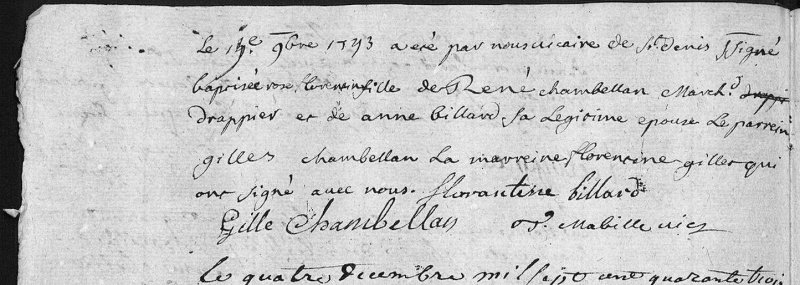 Le 14e. 9bre 1743 a eté par nous vicaire de St. denis Ssigné
baptisée rose florentin fille de René chambellan March.d drappi
drappier et de anne billard sa Legitime epouse Le parrein
gilles chambellan La marreine florentine gilles qui
ont signé avec nous. florantine billard
Gille Chambellan Mabille vic
le quatre decembre mil sept cent quarante trois